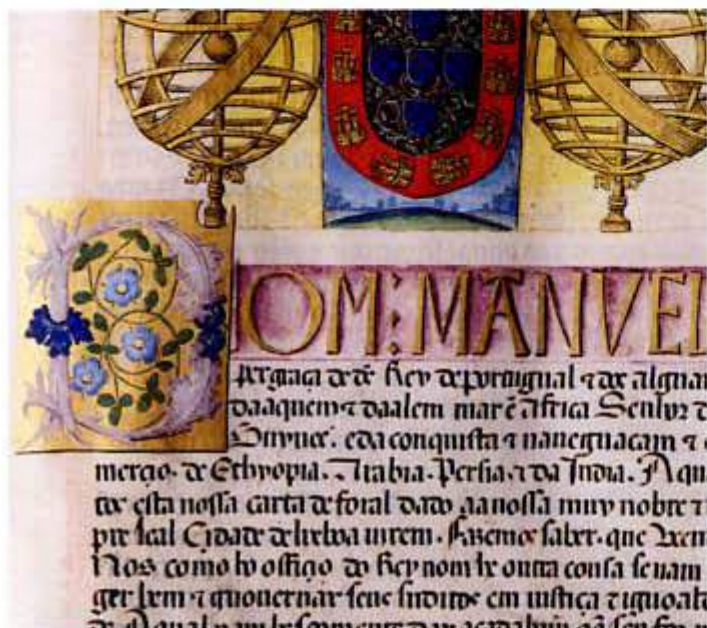 DOM: MANVEL
per graça de ds̃ Rey de portuugual ⁊ dos alguar
daaquem ⁊ daalem mar ẽ Affrica Senhor d
Guynee. e da conquista ⁊ naueguacam ⁊ c
merçio. de Ethyopia. Arabia. Persia. ⁊ da India. A qu
tos esta nossa carta de foral dado aa nossa muy nobre ⁊
pre leal Cidade de lixboa uirem. fazemos saber. que Veem
Nos como ho offiçio do Rey nom he outra cousa senam
ger bem ⁊ guouernar seus subditos em iustiça ⁊ igualt